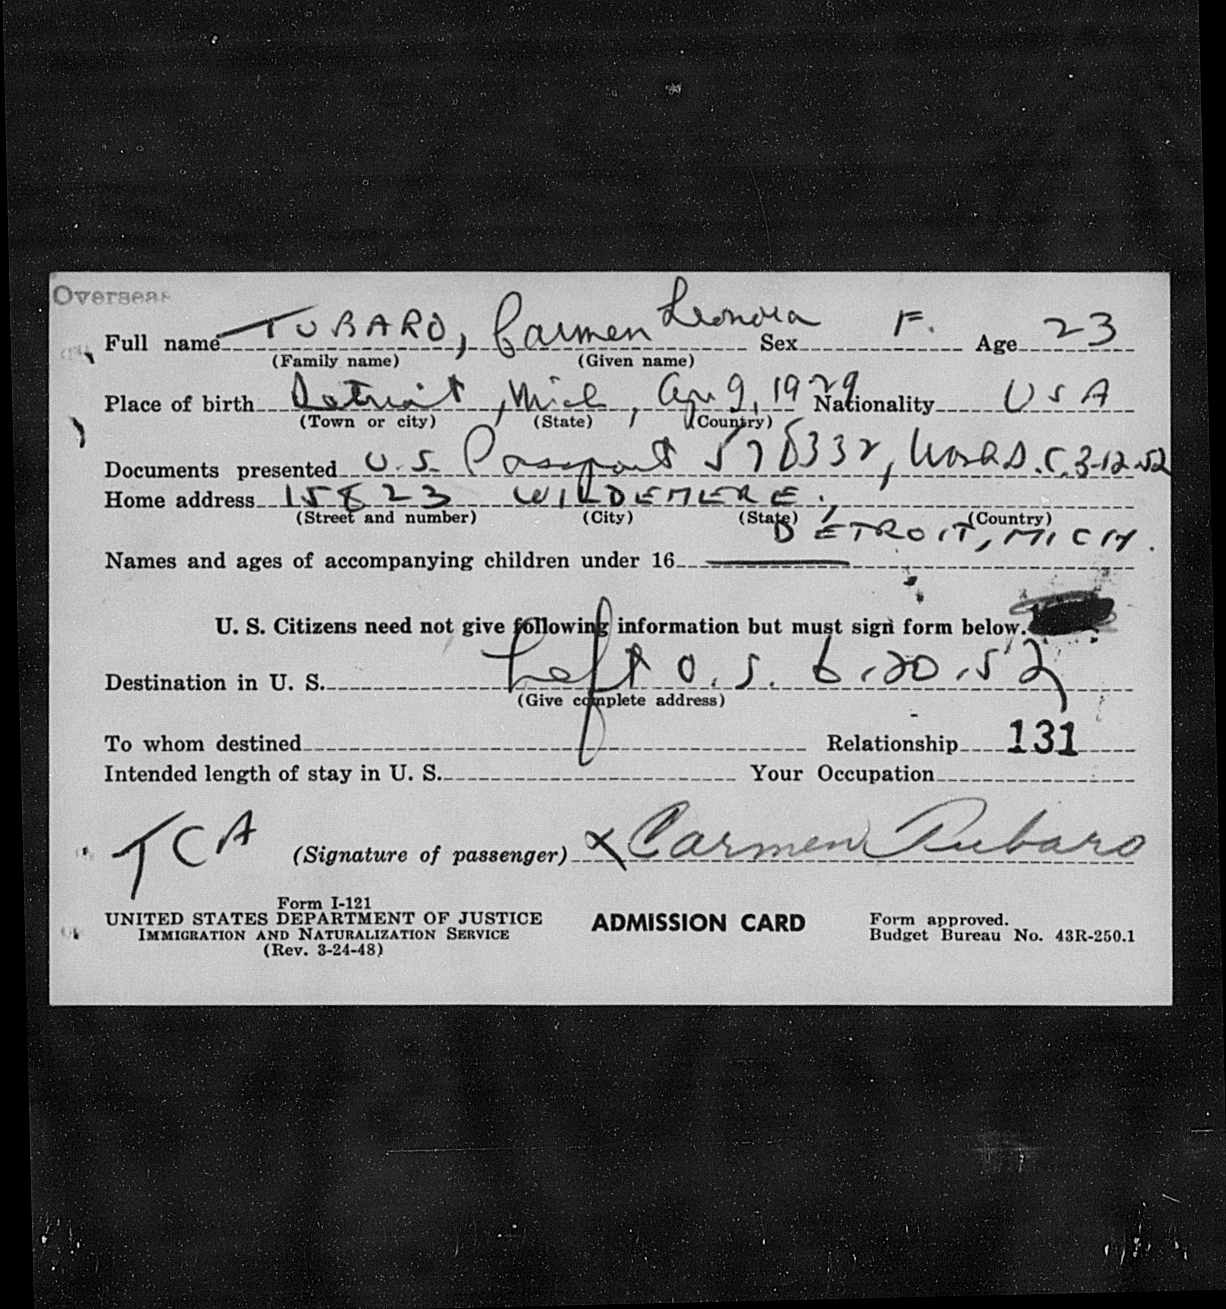 Overseas
Full name TUBARO, Carmen Leonora Sex F. Age 23
(Family name) (Given name)
Place of birth Detroit, Mich, Apr 9, 1929 Nationality USA
(Town or city) (State) (Country)
Documents presented U.S. Passport 578332, Wash D.C. 3-12-52
Home address 15823 WILDEMERE,
(Street and number) (City) (State) (Country)
DETROIT, MICH.
Names and ages of accompanying children under 16
U. S. Citizens need not give following information but must sign form below.
Destination in U. S. Left U.S. 6.20.52
(Give complete address)
To whom destined Relationship 131
Intended length of stay in U. S. Your Occupation
TCA (Signature of passenger) x Carmen Tubaro
Form I-121
UNITED STATES DEPARTMENT OF JUSTICE ADMISSION CARD Form approved.
IMMIGRATION AND NATURALIZATION SERVICE Budget Bureau No. 43R-250.1
(Rev. 3-24-48)